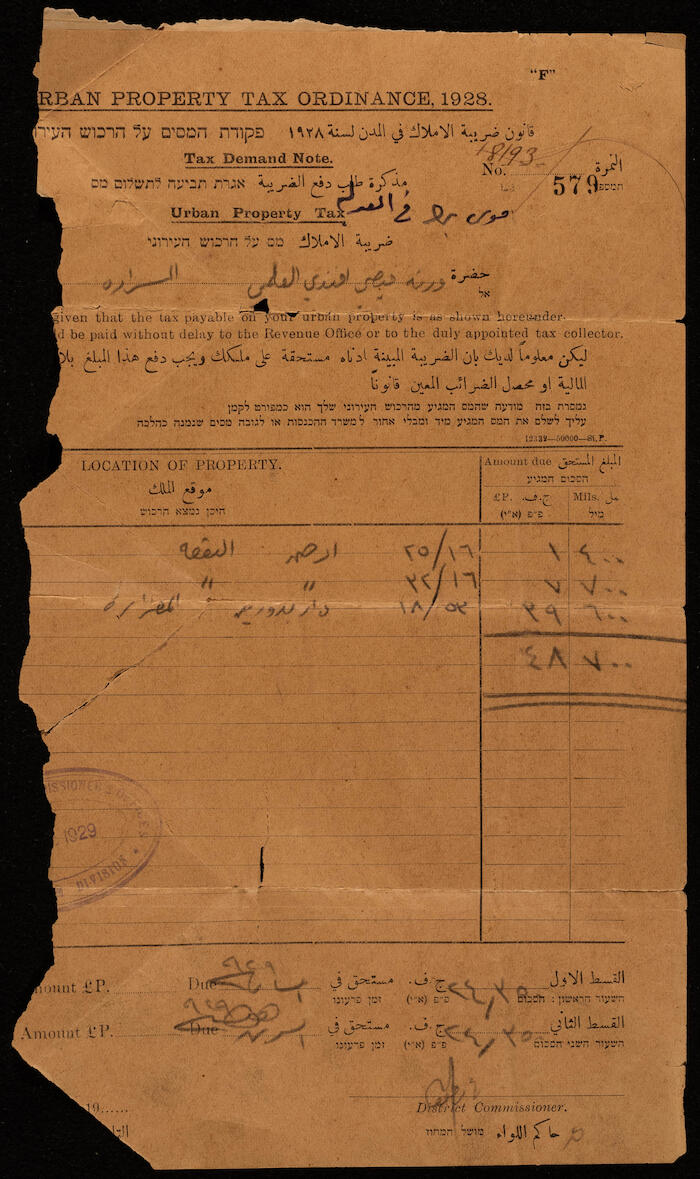 "F"
RBAN PROPERTY TAX ORDINANCE, 1928.
قانون ضريبة الاملاك في المدن لسنة ١٩٢٨ פקודת המסים על הרכוש העירו
Tax Demand Note.
No. 18193 579 النمرة
מذكرة طلب دفع الضريبة אגרת תביעה לתשלום מס
Urban Property Tax
ضريبة الاملاك מס על הרכוש העירוני
حضرة ورثة فيضي افندي العلمي
אל
given that the tax payable on your urban property is as shown hereunder
d be paid without delay to the Revenue Office or to the duly appointed tax collector.
ليكن معلوماً لديك بان الضريبة المبينة ادناه مستحقة على ملكك ويجب دفع هذا المبلغ بلا
المالية او محصل الضرائب المعين قانوناً
נמסרת בזה מודעה שהמס המגיע מהרכוש העירוני שלך הוא כמפורט לקמן
עליך לשלם את המס המגיע מיד ומבלי אחור למשרד ההכנסות או לגובה מסים שנמנה כהלכה
12332—50000—St.P.
LOCATION OF PROPERTY. Amount due المبلغ المستحق
موقع الملك הסכום המגיע
היכן נמצא הרכוש £P. ج.ف. Mils. مل
פ״פ (א״י) מיל
ارض البقعة ٢٥/١٦ ١ ٤٠٠
" " ٣٢/١٦ ٧ ٧٠٠
دار ١٨/٥٣ ٣٩ ٦٠٠
٤٨ ٧٠٠
ISSIONER'S OFFICES
1929
DIVISION
mount £P. Due ٩٢٩ مستحق في ج.ف. ٢٤/٣٥٠ القسط الاول
השעור הראשון: הסכום פ״פ (א״י) זמן פרעונו
Amount £P. Due ٩٢٩ مستحق في ج.ف. ٢٤/٣٥٠ القسط الثاني
השעור השני הסכום פ״פ (א״י) זמן פרעונו
District Commissioner.
19......
حاكم اللواء מושל המחוז
التا